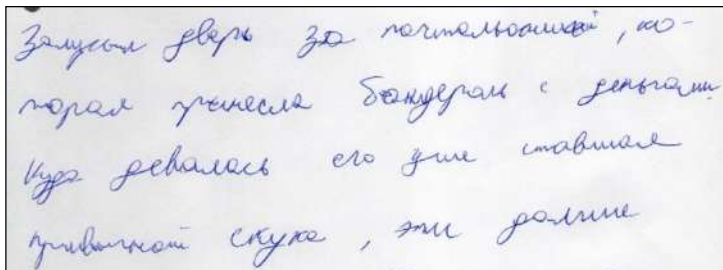 Запусыл дверь за почтальонкой, ко-
торая принесла бандероль с деньгами.
Куда девалась его уже ставшая
привычной скука, эти долгие